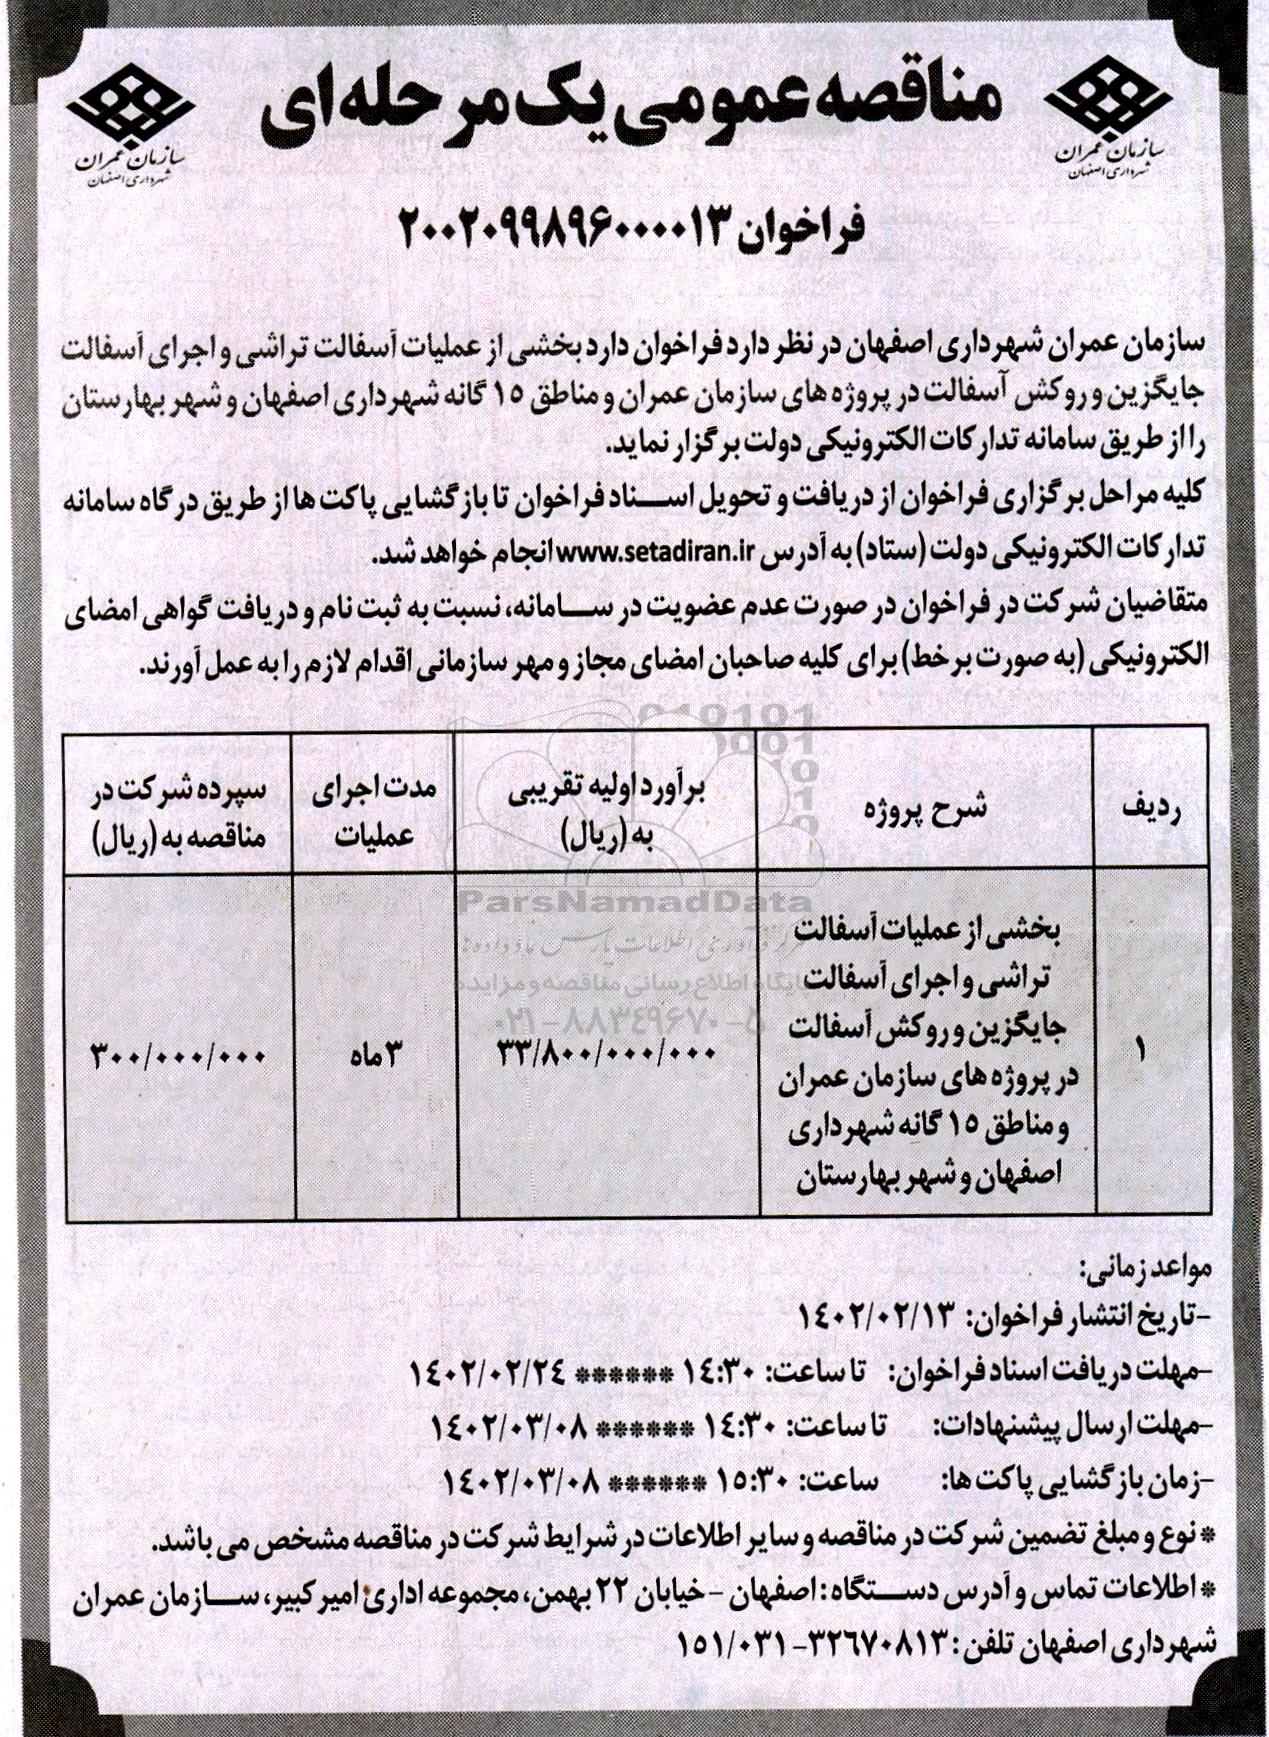 مناقصه عمومی یک مرحله ای
سازمان عمران
شهرداری اصفهان
سازمان عمران
شهرداری اصفهان
فراخوان ۲۰۰۲۰۹۹۸۹۶۰۰۰۰۱۳
سازمان عمران شهرداری اصفهان در نظر دارد فراخوان دارد بخشی از عملیات آسفالت تراشی و اجرای آسفالت
جایگزین و روکش آسفالت در پروژه های سازمان عمران و مناطق ۱۵ گانه شهرداری اصفهان و شهر بهارستان
را از طریق سامانه تدارکات الکترونیکی دولت برگزار نماید.
کلیه مراحل برگزاری فراخوان از دریافت و تحویل اسناد فراخوان تا بازگشایی پاکت ها از طریق درگاه سامانه
تدارکات الکترونیکی دولت (ستاد) به آدرس www.setadiran.ir انجام خواهد شد.
متقاضیان شرکت در فراخوان در صورت عدم عضویت در سامانه، نسبت به ثبت نام و دریافت گواهی امضای
الکترونیکی (به صورت برخط) برای کلیه صاحبان امضای مجاز و مهر سازمانی اقدام لازم را به عمل آورند.
ردیف
شرح پروژه
برآورد اولیه تقریبی
به (ریال)
مدت اجرای
عملیات
سپرده شرکت در
مناقصه به (ریال)
۱
بخشی از عملیات آسفالت
تراشی و اجرای آسفالت
جایگزین و روکش آسفالت
در پروژه های سازمان عمران
و مناطق ۱۵ گانه شهرداری
اصفهان و شهر بهارستان
۳۳/۸۰۰/۰۰۰/۰۰۰
۳ ماه
۳۰۰/۰۰۰/۰۰۰
ParsNamadData
پایگاه اطلاع رسانی مناقصه و مزایده
۰۲۱-۸۸۳۴۹۶۷۰-۵
مواعد زمانی:
-تاریخ انتشار فراخوان: ۱۴۰۲/۰۲/۱۳
-مهلت دریافت اسناد فراخوان: تا ساعت: ۱۴:۳۰ ****** ۱۴۰۲/۰۲/۲۴
-مهلت ارسال پیشنهادات: تا ساعت: ۱۴:۳۰ ****** ۱۴۰۲/۰۳/۰۸
-زمان بازگشایی پاکت ها: ساعت: ۱۵:۳۰ ****** ۱۴۰۲/۰۳/۰۸
* نوع و مبلغ تضمین شرکت در مناقصه و سایر اطلاعات در شرایط شرکت در مناقصه مشخص می باشد.
* اطلاعات تماس و آدرس دستگاه: اصفهان - خیابان ۲۲ بهمن، مجموعه اداری امیرکبیر، سازمان عمران
شهرداری اصفهان تلفن: ۳۲۶۷۰۸۱۳-۱۵۱/۰۳۱